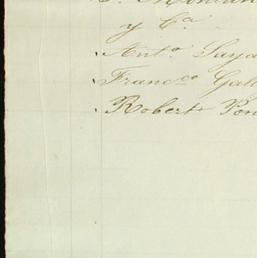 y Cª
Antº Saya
Francco Gal
Robert Pon